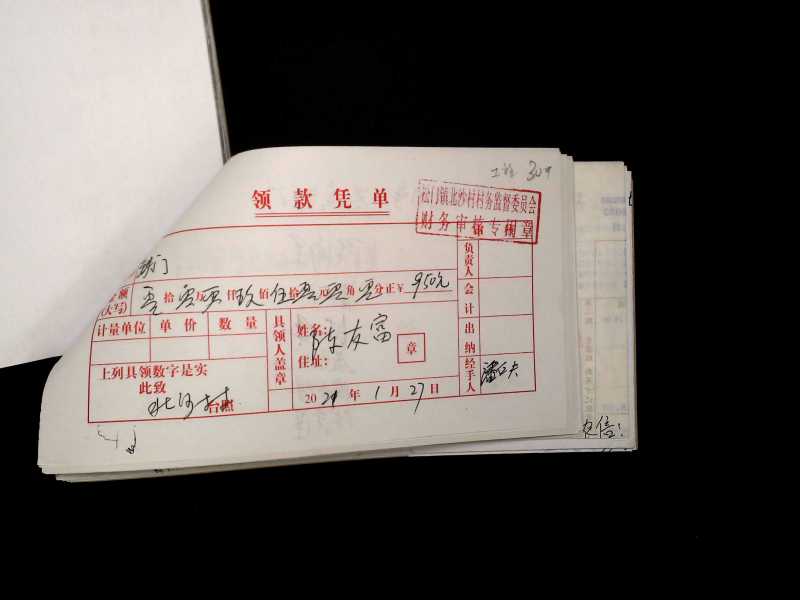 309
领款凭单
松门镇北沙村村务监督委员会
财务审核专用章
负责人
(大写) 零拾零万零仟玖佰伍拾零元零角零分正¥ 950元
会计
计量单位 单价 数量
具领人盖章
姓名: 陈友富
住址:
章
出纳
上列具领数字是实
此致
北沙村台照
2021年1月27日
经手人